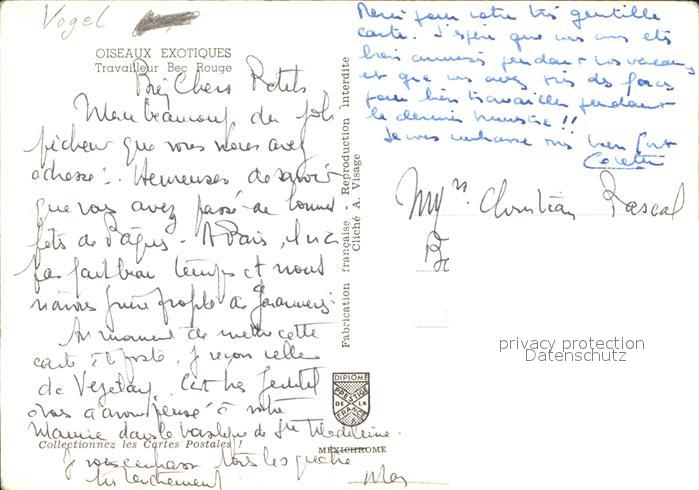 Vogel
OISEAUX EXOTIQUES
Travailleur Bec Rouge
Bien Chers
beaucoup du joli
pêcheur que vous nous avez
adressé. Heureuses de savoir
que vous avez passé de bonnes
fêtes de Pâques - A Paris, il n'a
pas fait beau temps et nous
n'avons guère profité de
Au moment de mettre cette
carte à la poste, je reçois celle
de Vezelay. C'est très gentil
à vous d'avoir pensé à notre
dans la basilique de Ste Madeleine.
Collectionnez les Cartes Postales !
Je vous embrasse tous les quatre
très tendrement
Fabrication française - Reproduction interdite
Cliché A. Visage
Merci pour votre très gentille
carte. J'espère que vous vous êtes
bien amusés pendant vos vacances
et que vous avez pris des forces
pour bien travailler pendant
le dernier trimestre !!
Je vous embrasse tous bien fort
Colette
Christian Pascal
privacy protection
Datenschutz
DIPLOME
PRESTIGE
DE LA
FRANCE
MEXICHROME